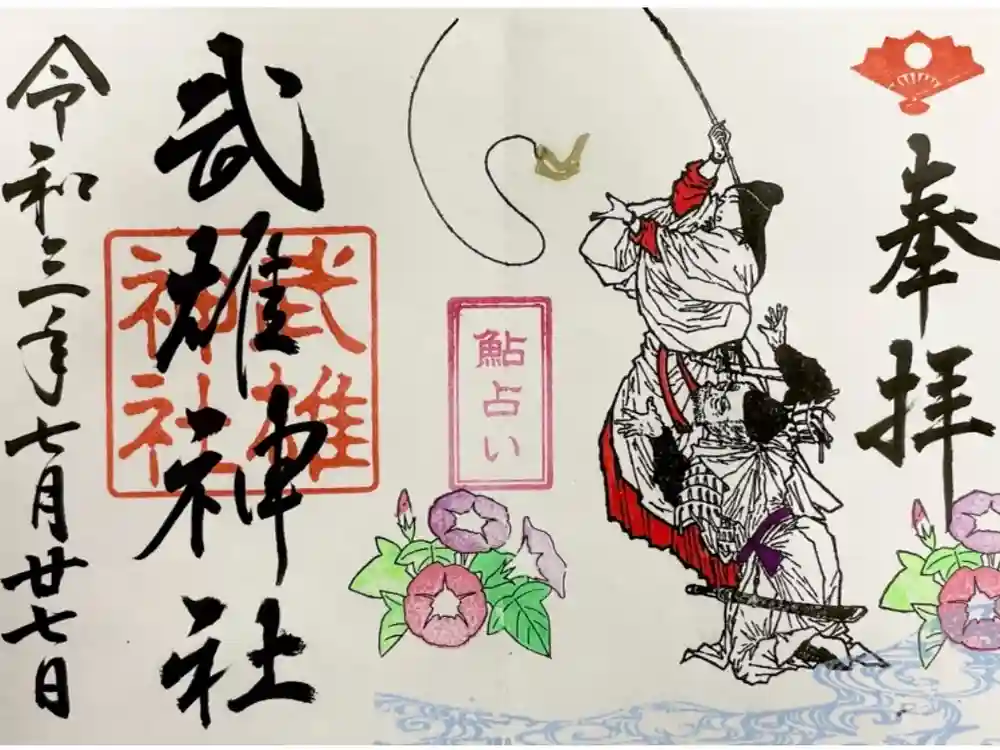 奉拝
鮎占い
武雄神社
武雄
神社
令和三年七月廿七日